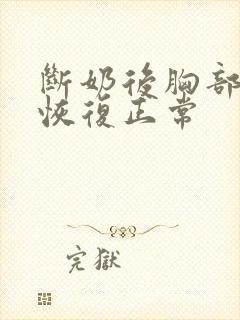 斷奶後胸部
恢復正常
完獄